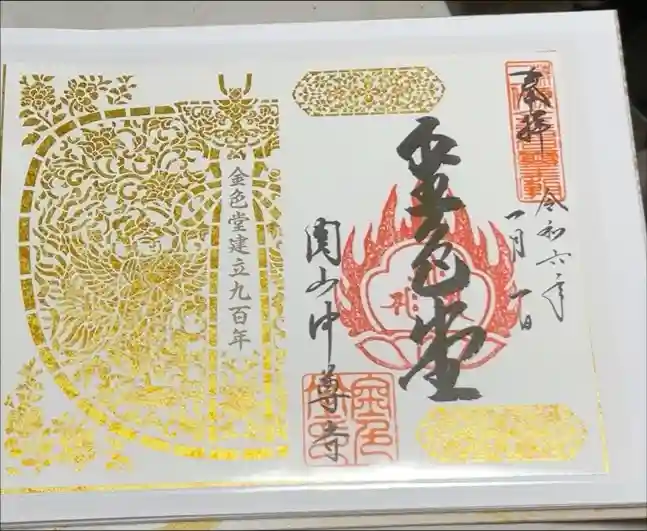 奉拝
令和六年
一月一日
金色堂
関山中尊寺
金色堂建立九百年